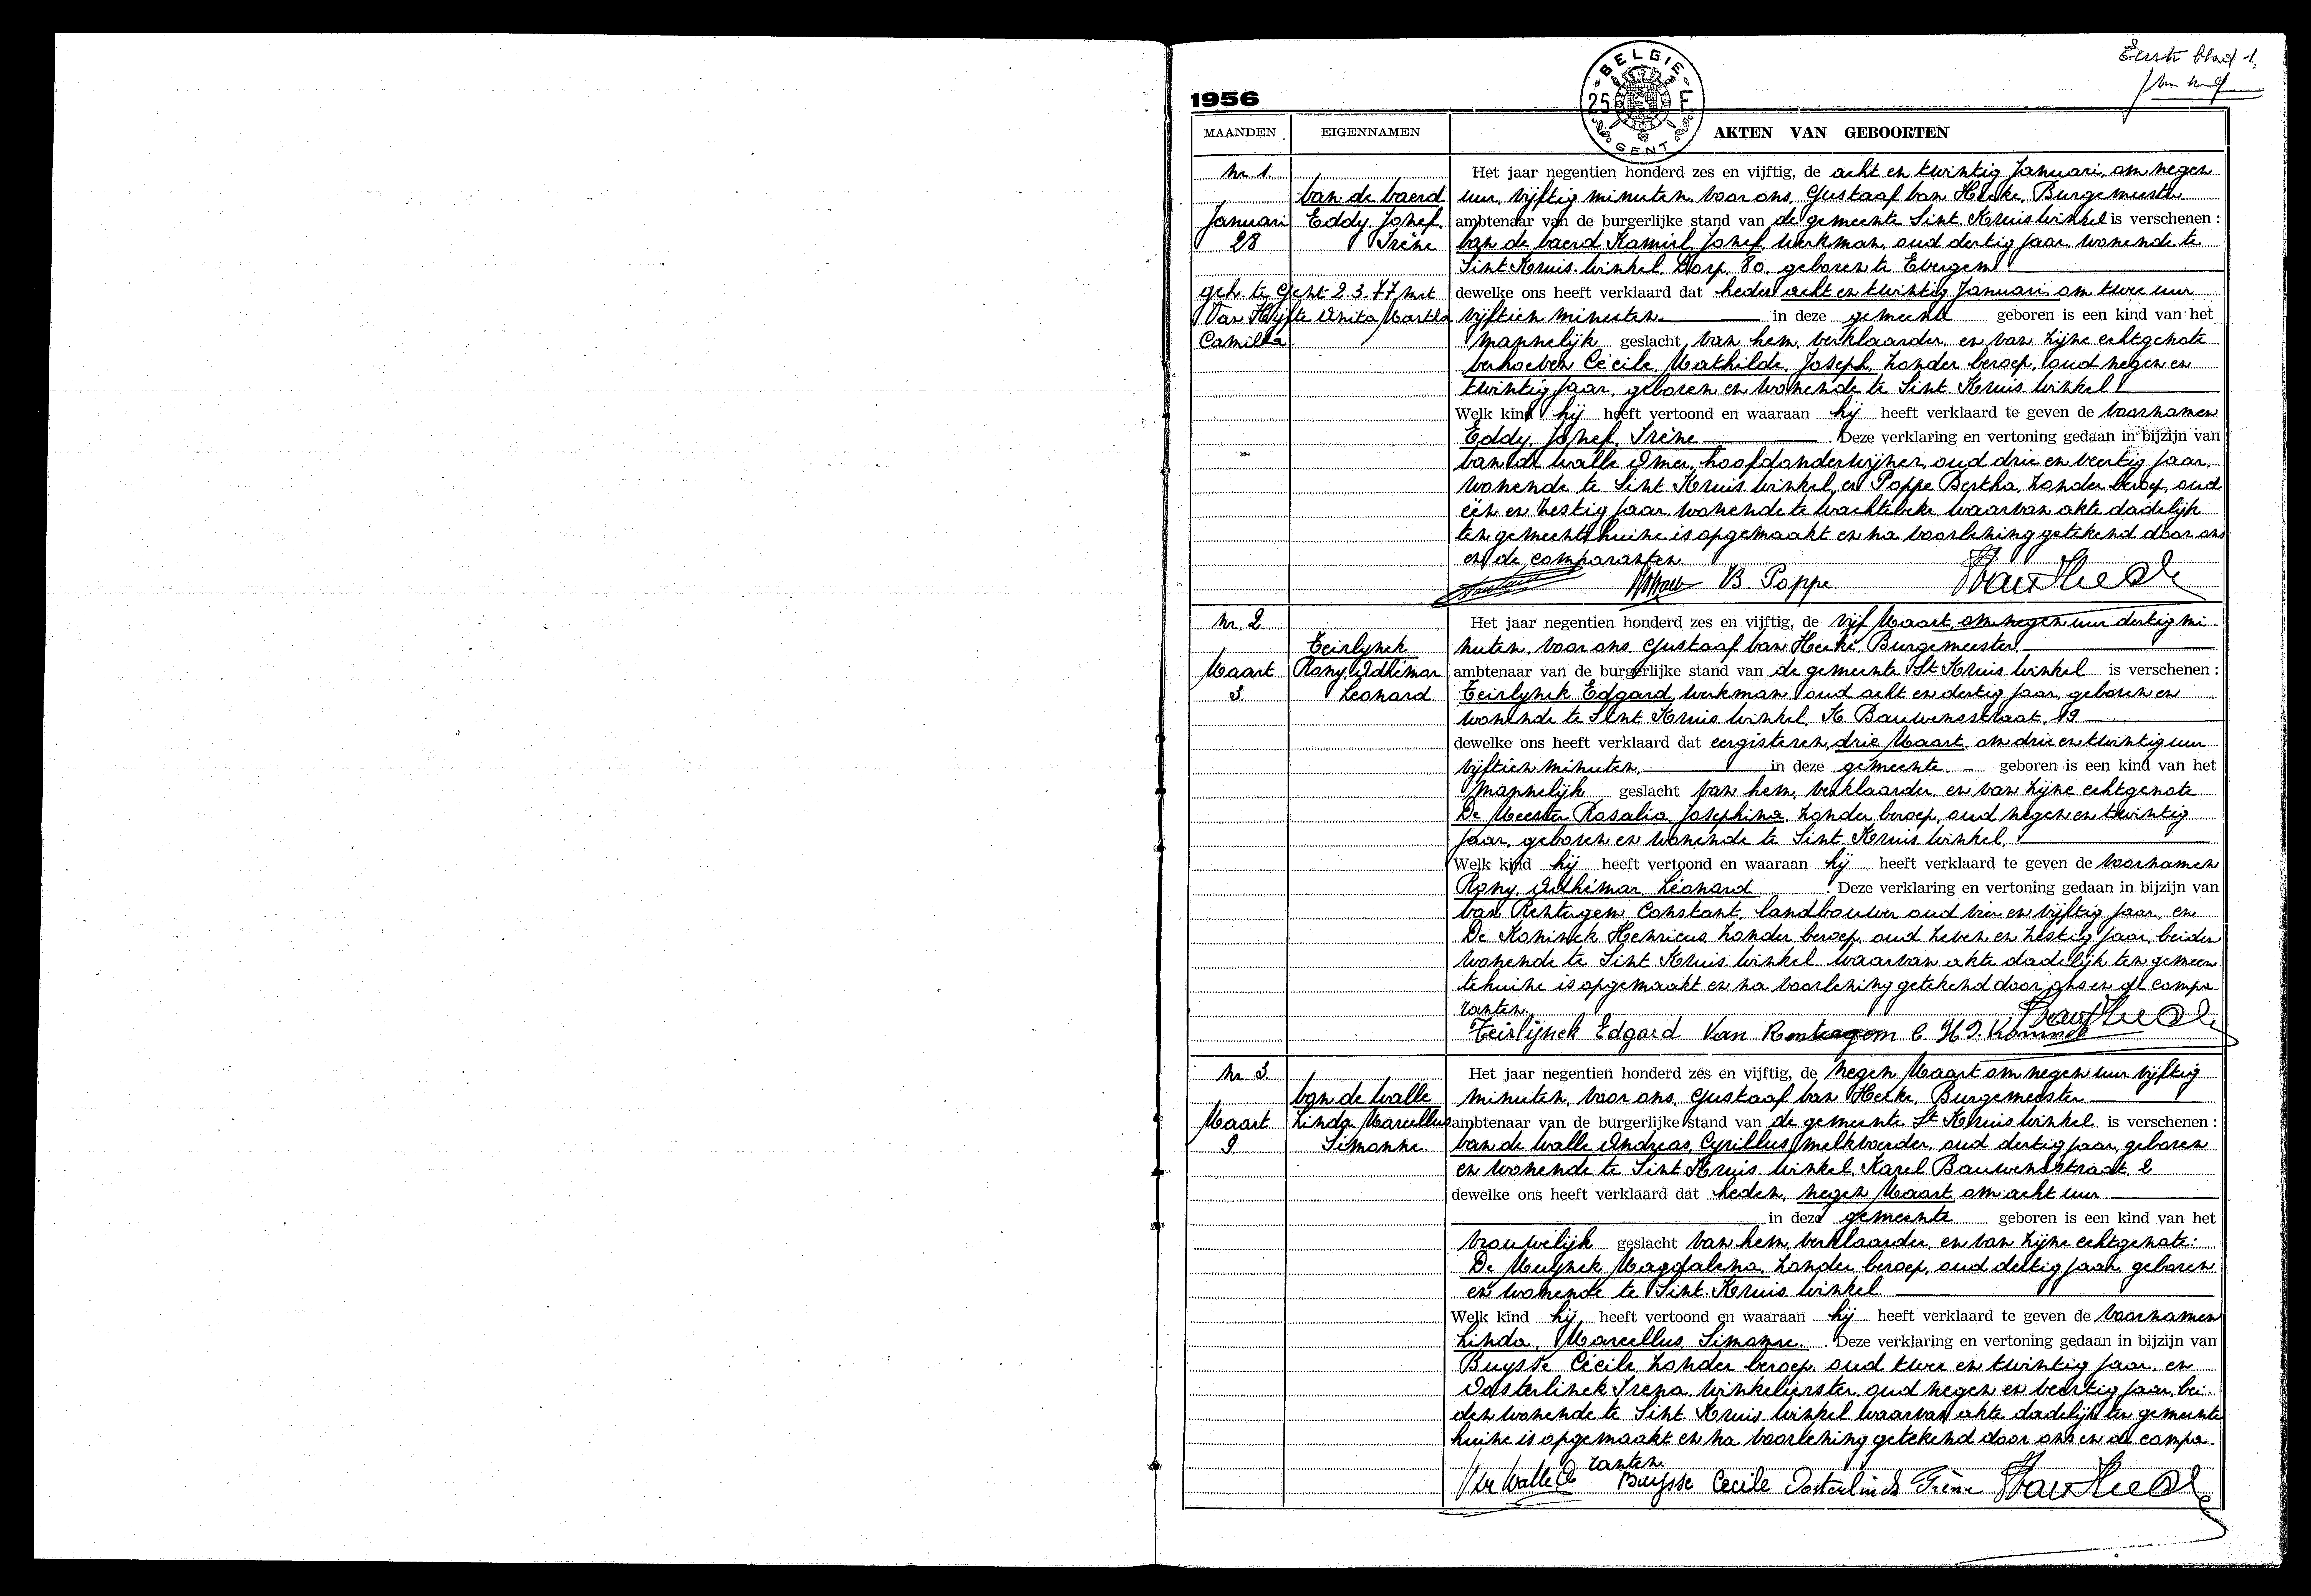 Eerste blad 1,
1956
BELGIE
25 F
GENT
MAANDEN EIGENNAMEN AKTEN VAN GEBOORTEN
Nr. 1. Het jaar negentien honderd zes en vijftig, de acht en twintig Januari, om negen
Van de Vaerd uur, vijftig minuten, voor ons, Gustaaf Van Hecke, Burgemeester
Januari Eddy Jozef ambtenaar van de burgerlijke stand van de gemeente Sint Kruis Winkel is verschenen :
28 Irène Van de Vaerd Kamiel Jozef, werkman, oud dertig jaar, wonende te
Sint Kruis Winkel, Dorp, 80, geboren te Evergem
geh. te Gent 2.3.77 met dewelke ons heeft verklaard dat heden acht en twintig Januari, om twee uur
Van Hijfte Anita Martha vijftien minuten in deze gemeente geboren is een kind van het
Camilla mannelijk geslacht van hem, verklaarder, en van zijne echtgenote
Verhoeven Cécile, Mathilde, Joseph, zonder beroep, oud negen en
twintig jaar, geboren en wonende te Sint Kruis Winkel
Welk kind hij heeft vertoond en waaraan hij heeft verklaard te geven de voornamen
Eddy, Jozef, Irène. Deze verklaring en vertoning gedaan in bijzijn van
Van de Walle Omer, hoofdonderwijzer, oud drie en veertig jaar,
wonende te Sint Kruis Winkel, en Poppe Bertha, zonder beroep, oud
één en zestig jaar, wonende te Wachtebeke waarvan akte dadelijk
ten gemeentehuize is opgemaakt en na voorlezing getekend door ons
en de comparanten
B. Poppe
Nr. 2. Het jaar negentien honderd zes en vijftig, de vijf Maart, om negen uur dertig mi
Teirlynck nuten, voor ons, Gustaaf Van Hecke, Burgemeester
Maart Rony Adhémar ambtenaar van de burgerlijke stand van de gemeente St Kruis Winkel is verschenen :
3 Leonard Teirlynck Edgard, werkman, oud acht en dertig jaar, geboren en
wonende te Sint Kruis Winkel, K. Bauwensstraat, 19
dewelke ons heeft verklaard dat eergisteren, drie Maart, om drie en twintig uur
vijftien minuten in deze gemeente geboren is een kind van het
mannelijk geslacht van hem, verklaarder, en van zijne echtgenote
De Meester Rosalia Josephina, zonder beroep, oud negen en twintig
jaar, geboren en wonende te Sint Kruis Winkel,
Welk kind hij heeft vertoond en waaraan hij heeft verklaard te geven de voornamen
Rony, Adhémar, Léonard. Deze verklaring en vertoning gedaan in bijzijn van
Van Rentergem Constant, landbouwer oud vier en vijftig jaar, en
De Koninck Henricus zonder beroep, oud zeven en zestig jaar, beiden
wonende te Sint Kruis Winkel waarvan akte dadelijk ten gemeen
tehuize is opgemaakt en na voorlezing getekend door ons en de compa
ranten.
Teirlijnck Edgard Van C H D. Koninck
Nr. 3. Het jaar negentien honderd zes en vijftig, de negen Maart om negen uur vijftig
Van de Walle minuten, voor ons, Gustaaf Van Hecke, Burgemeester
Maart Linda Marcellus ambtenaar van de burgerlijke stand van de gemeente St Kruis Winkel is verschenen :
9 Simonne Van de Walle Andreas, Cyrillus, melkvoerder, oud dertig jaar, geboren
en wonende te Sint Kruis Winkel, Karel Bauwensstraat, 2
dewelke ons heeft verklaard dat heden, negen Maart, om acht uur
in deze gemeente geboren is een kind van het
vrouwelijk geslacht van hem, verklaarder, en van zijne echtgenote:
De Muynck Magdalena, zonder beroep, oud dertig jaar, geboren
en wonende te Sint Kruis Winkel
Welk kind hij heeft vertoond en waaraan hij heeft verklaard te geven de voornamen
Linda, Marcellus, Simonne. Deze verklaring en vertoning gedaan in bijzijn van
Buysse Cécile, zonder beroep, oud twee en twintig jaar, en
Oosterlinck Irena, winkelierster, oud negen en veertig jaar, bei
den wonende te Sint Kruis Winkel waarvan akte dadelijk ten gemeente
huize is opgemaakt en na voorlezing getekend door ons en de compa
ranten.
Buijsse Cecile Oosterlinck Irène